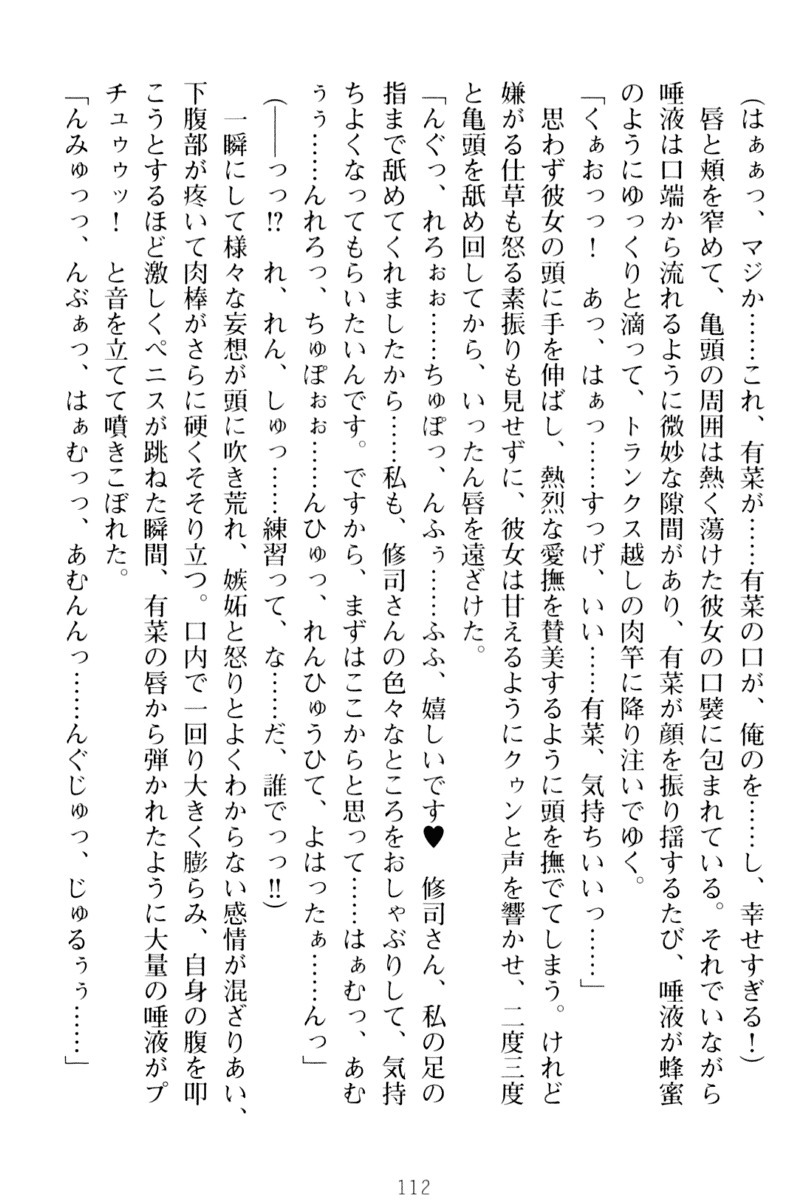 (はぁぁっ、マジか……これ、有菜が……有菜の口が、俺のを……し、幸せすぎる!)
　唇と頬を窄めて、亀頭の周囲は熱く蕩けた彼女の口襞に包まれている。それでいながら
唾液は口端から流れるように微妙な隙間があり、有菜が顔を振り揺するたび、唾液が蜂蜜
のようにゆっくりと滴って、トランクス越しの肉竿に降り注いでゆく。
「くぁおっっ!　あっ、はぁっ……すっげ、いい……有菜、気持ちいいっ……」
　思わず彼女の頭に手を伸ばし、熱烈な愛撫を賛美するように頭を撫でてしまう。けれど
嫌がる仕草も怒る素振りも見せずに、彼女は甘えるようにクゥンと声を響かせ、二度三度
と亀頭を舐め回してから、いったん唇を遠ざけた。
「んぐっ、れろぉぉ……ちゅぽっ、んふぅ……ふふ、嬉しいです♥　修司さん、私の足の
指まで舐めてくれましたから……私も、修司さんの色々なところをおしゃぶりして、気持
ちよくなってもらいたいんです。ですから、まずはここからと思って……はぁむっ、あむ
ぅぅ……んれろっ、ちゅぽぉぉ……んひゅっ、れんひゅうひて、よはったぁ……んっ」
(――っっ!?　れ、れん、しゅっ……練習って、な……だ、誰でっっ!!)
　一瞬にして様々な妄想が頭に吹き荒れ、嫉妬と怒りとよくわからない感情が混ざりあい、
下腹部が疼いて肉棒がさらに硬くそそり立つ。口内で一回り大きく膨らみ、自身の腹を叩
こうとするほど激しくペニスが跳ねた瞬間、有菜の唇から弾かれたように大量の唾液がプ
チュゥゥッ!　と音を立てて噴きこぼれた。
「んみゅっっ、んぶぁっ、はぁむっっ、あむんんっ……んぐじゅっ、じゅるぅぅ……」
112